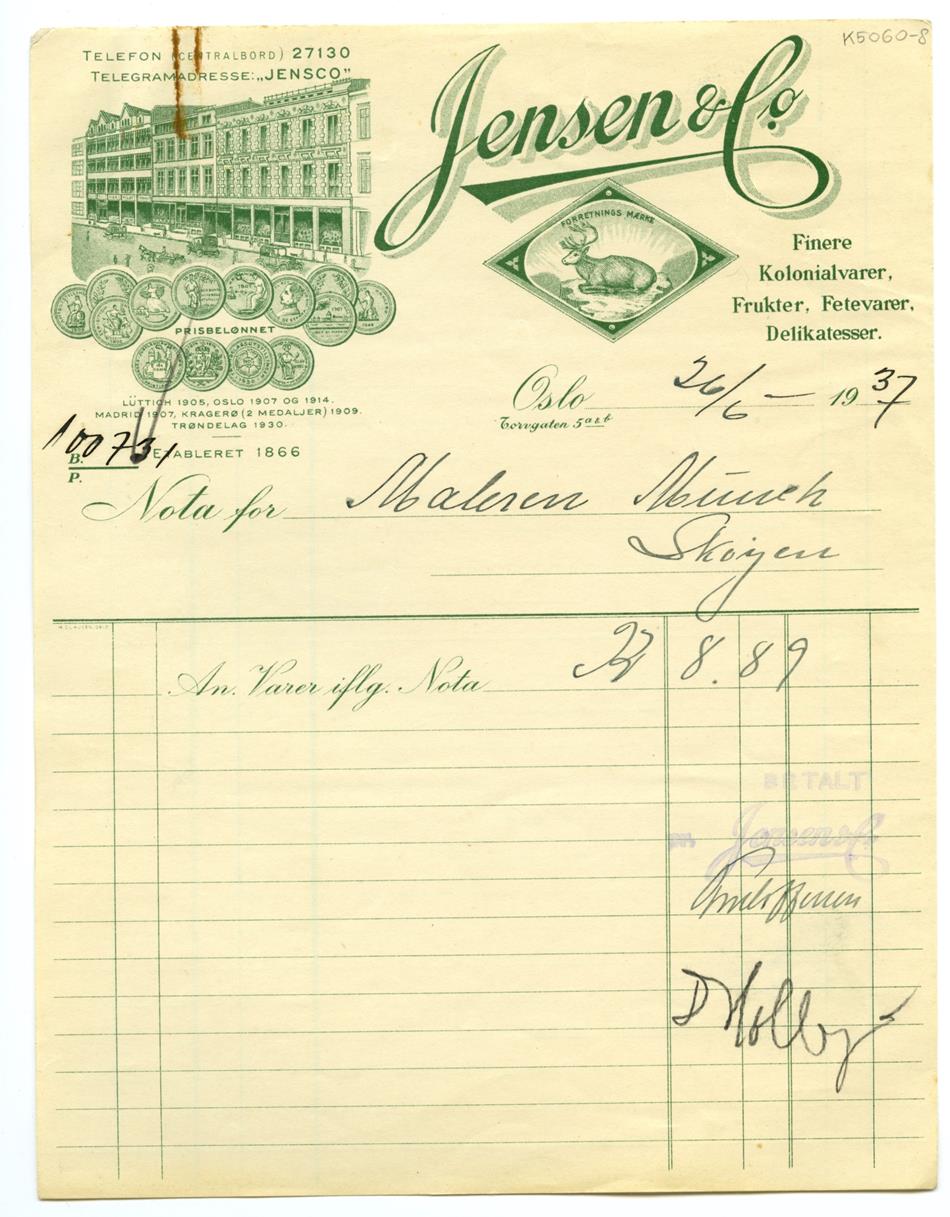 K5060-8
TELEFON (CENTRALBORD) 27130
TELEGRAMADRESSE: „JENSCO"
Jensen & Co.
FORRETNINGS MÆRKE
Finere
Kolonialvarer,
Frukter, Fetevarer,
Delikatesser.
PRISBELØNNET
LÜTTICH 1905, OSLO 1907 OG 1914.
MADRID 1907, KRAGERØ (2 MEDALJER) 1909.
TRØNDELAG 1930.
ETABLERET 1866
Oslo 26/6 - 1937
Torvgaten 5 a & b
100731
B.
P.
Nota for Maleren Munch
Skøyen
An. Varer iflg. Nota Kr 8.89
BETALT
Jensen & Co.
D Holby